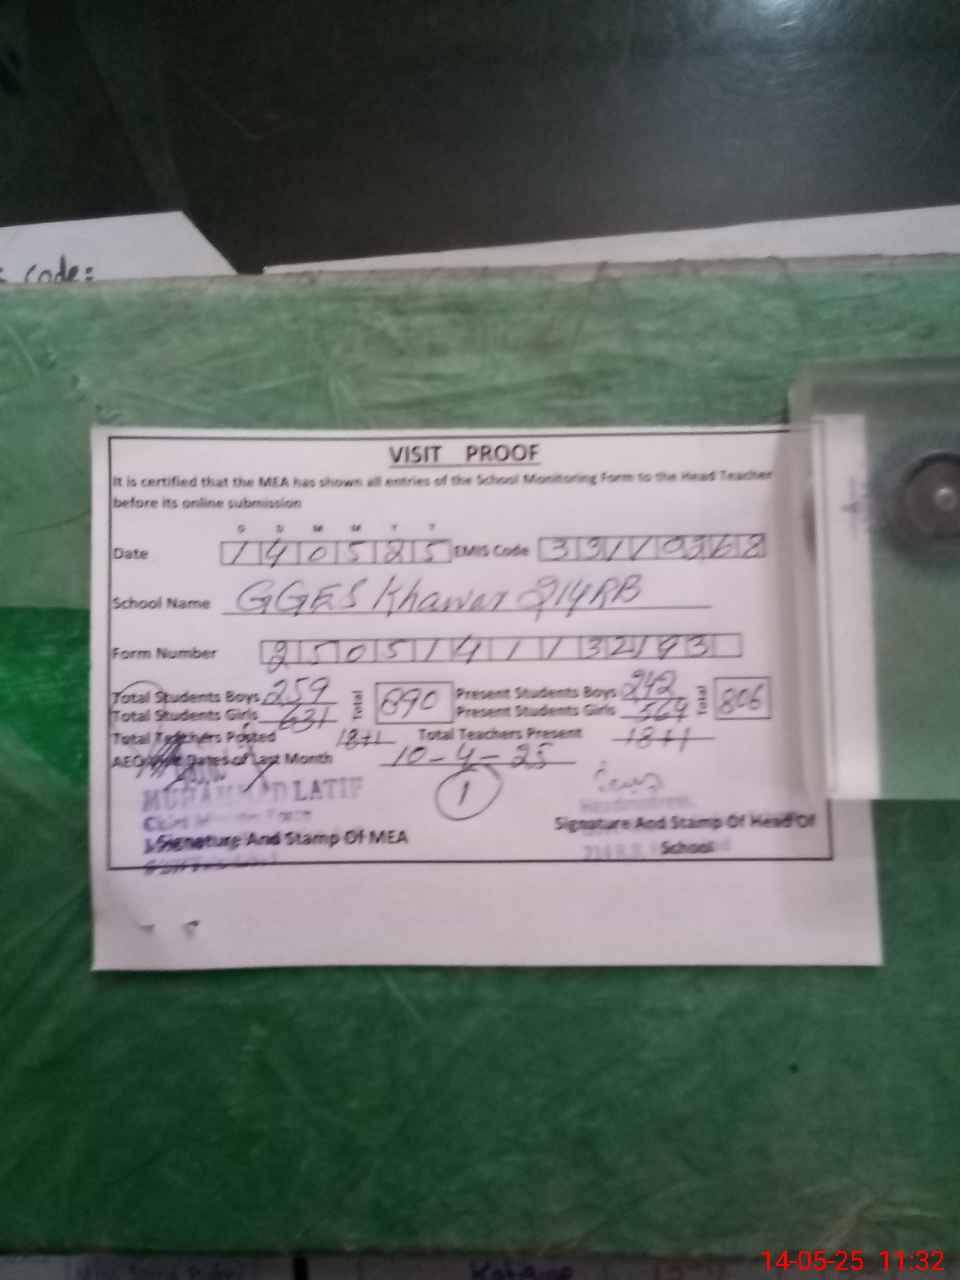 code:
VISIT PROOF
It is certified that the MEA has shown all entries of the School Monitoring Form to the Head Teacher
before its online submission
D D M M Y Y
Date 140525 EMIS Code 33110268
School Name GGES Khawar 214RB
Form Number 250514113293
Total Students Boys 259 Total 890 Present Students Boys 242 Total 806
Total Students Girls 631 Present Students Girls 564
Total Teachers Posted 18+1 Total Teachers Present 18+1
AEO Visit Dates of Last Month 10-4-25
1
MUHAMMAD LATIF
Headmistress
Signature And Stamp Of MEA Signature And Stamp Of Head Of
School
14-05-25 11:32